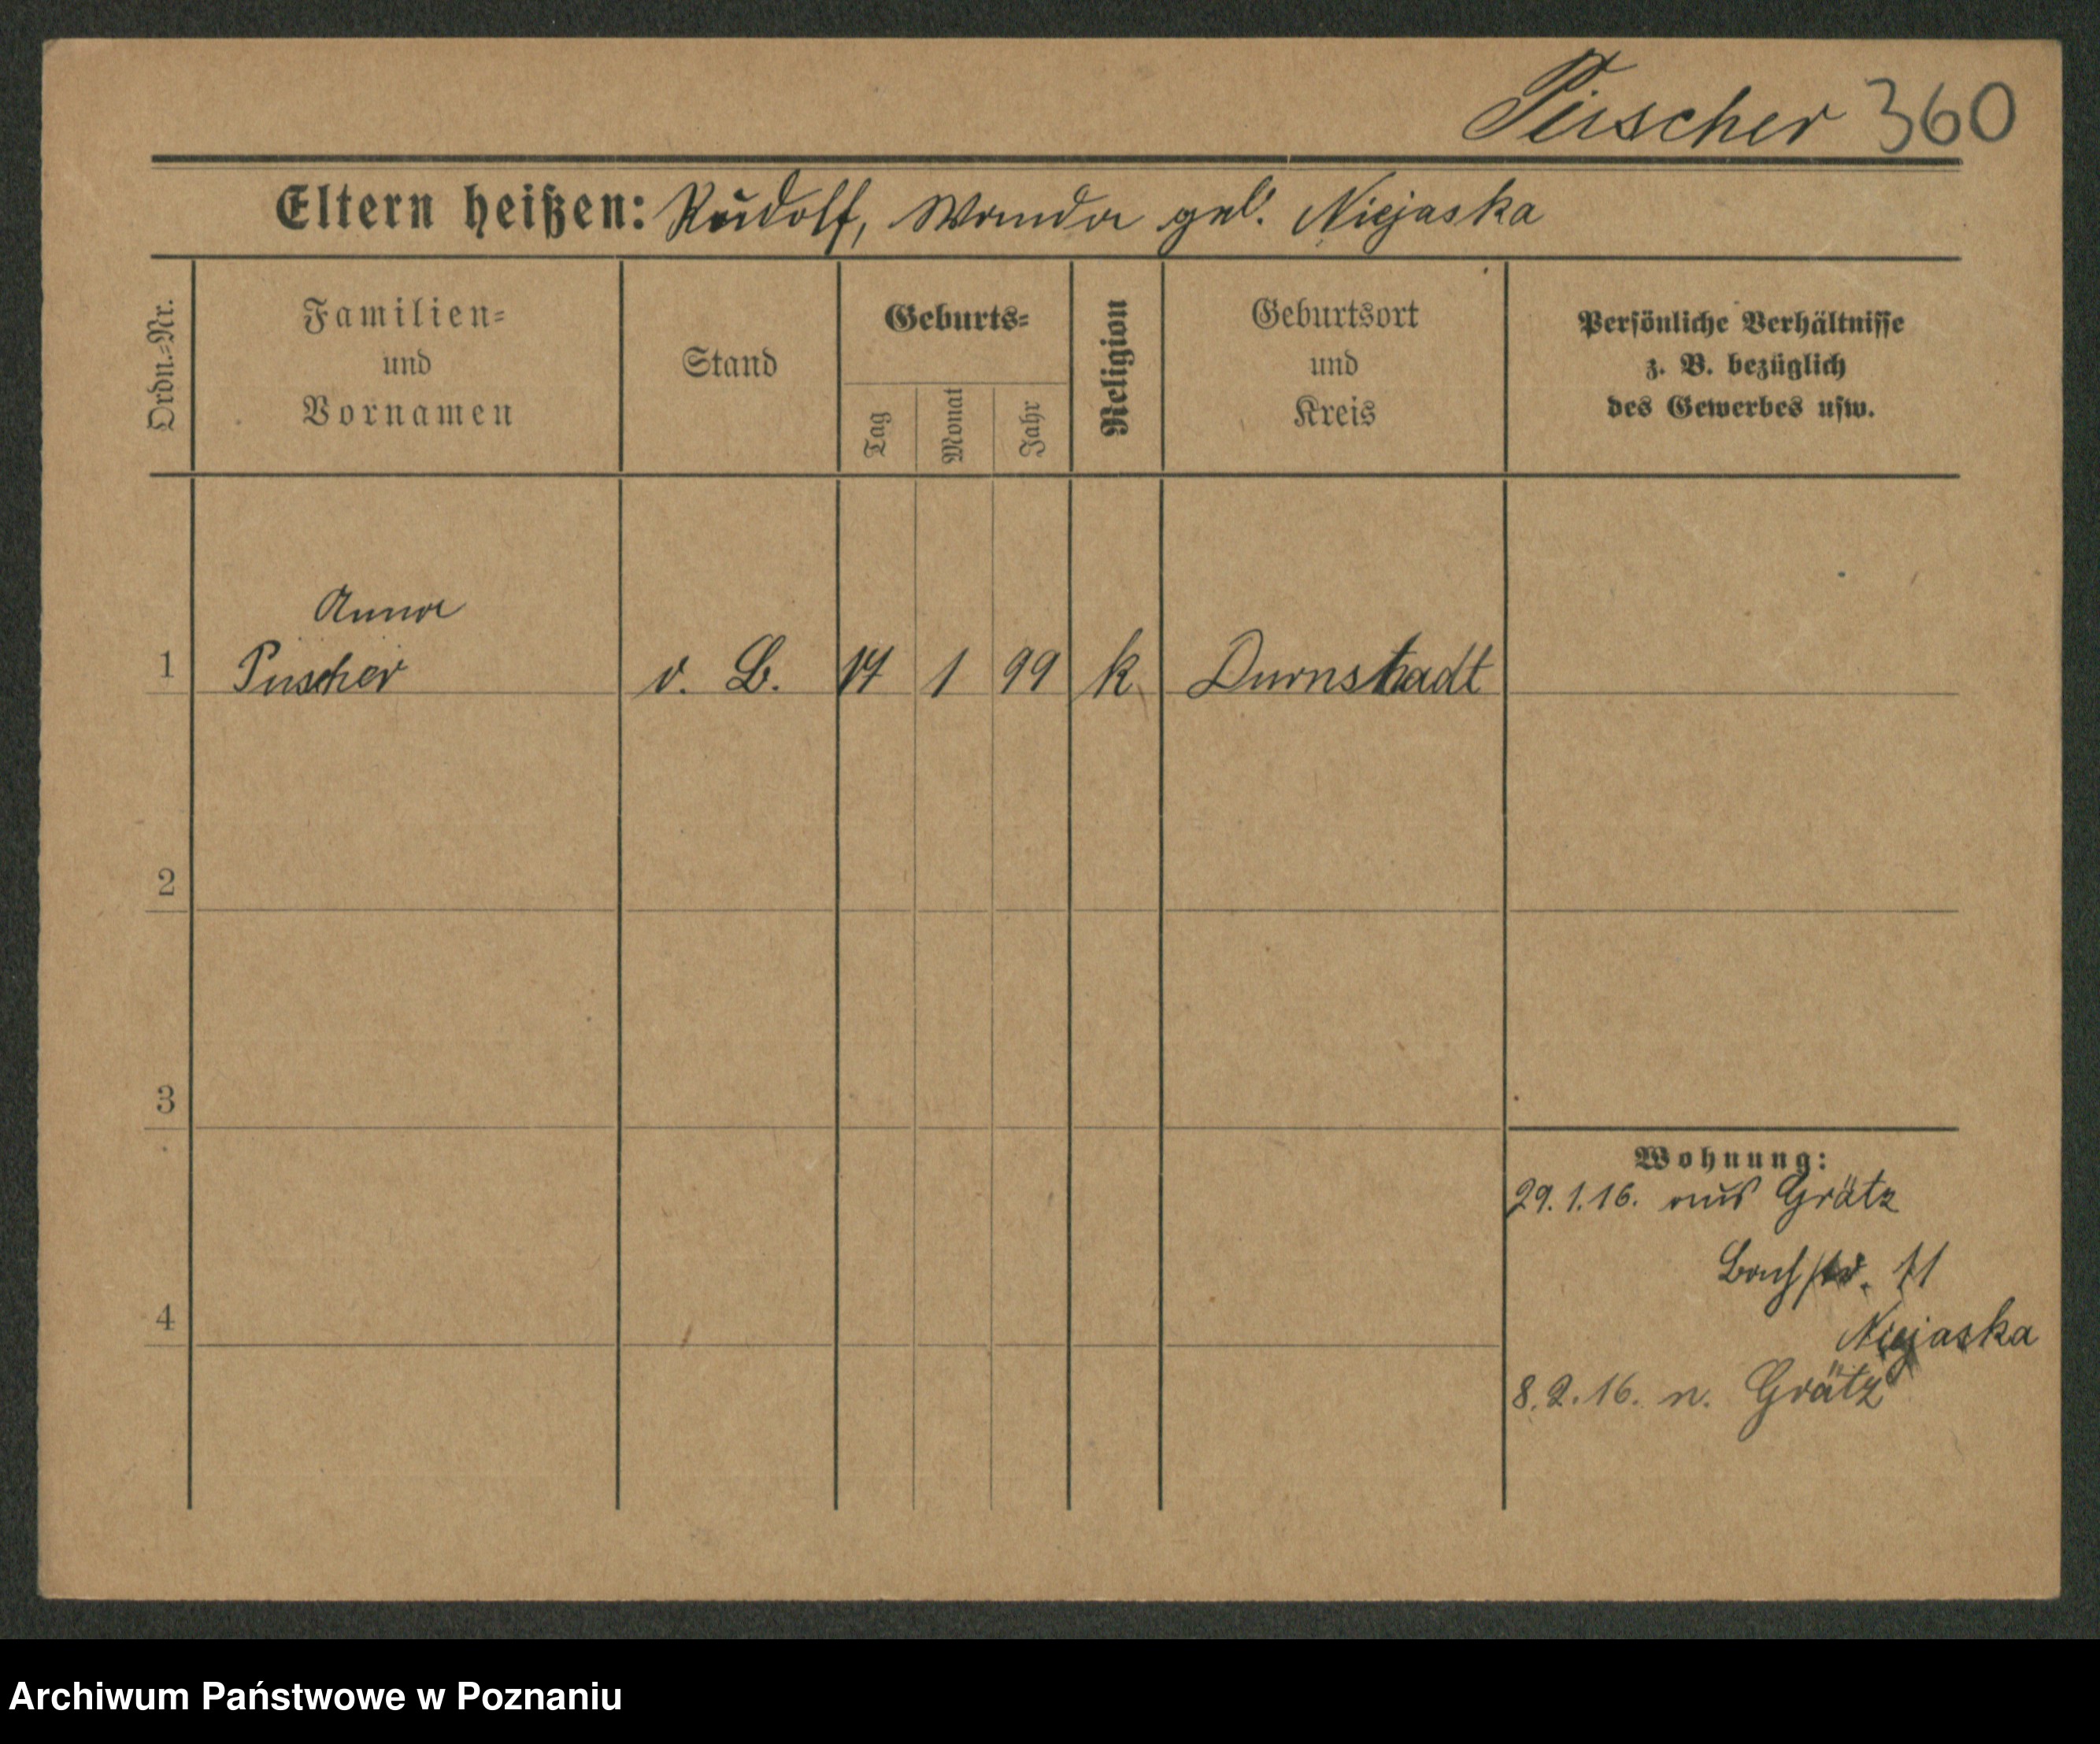 Puscher 360
Eltern heißen: Rudolf, Wanda geb. Niejaska
Ordn.-Nr.
Familien-
und
Vornamen
Stand
Geburts-
Tag
Monat
Jahr
Religion
Geburtsort
und
Kreis
Persönliche Verhältnisse
z. B. bezüglich
des Gewerbes usw.
Anna
1 Puscher o. B. 17 1 99 k Durnstadt
2
3
4
Wohnung:
29.1.16. aus Grätz
Bachstr. 11
Niejaska
8.2.16. n. Grätz
Archiwum Państwowe w Poznaniu